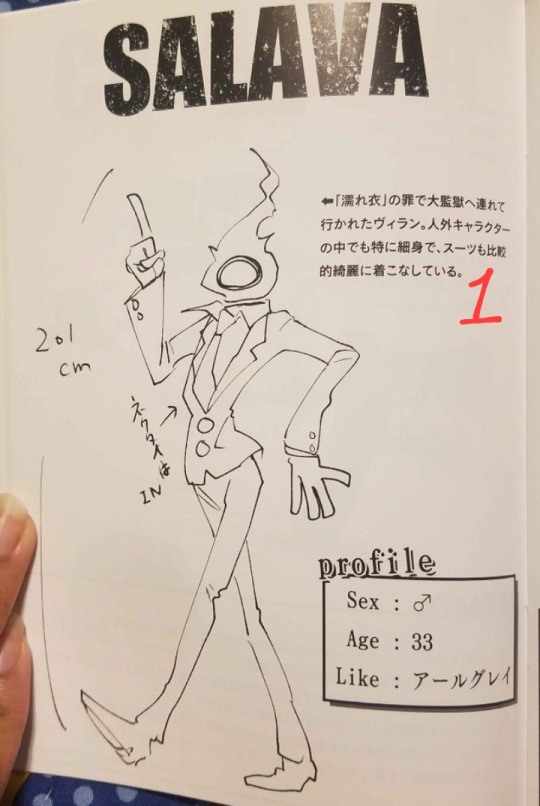 SALAVA
←「濡れ衣」の罪で大監獄へ連れて
行かれたヴィラン。人外キャラクター
の中でも特に細身で、スーツも比較
的綺麗に着こなしている。
1
201
cm
ネクタイは
IN
profile
Sex : ♂
Age : 33
Like : アールグレイ